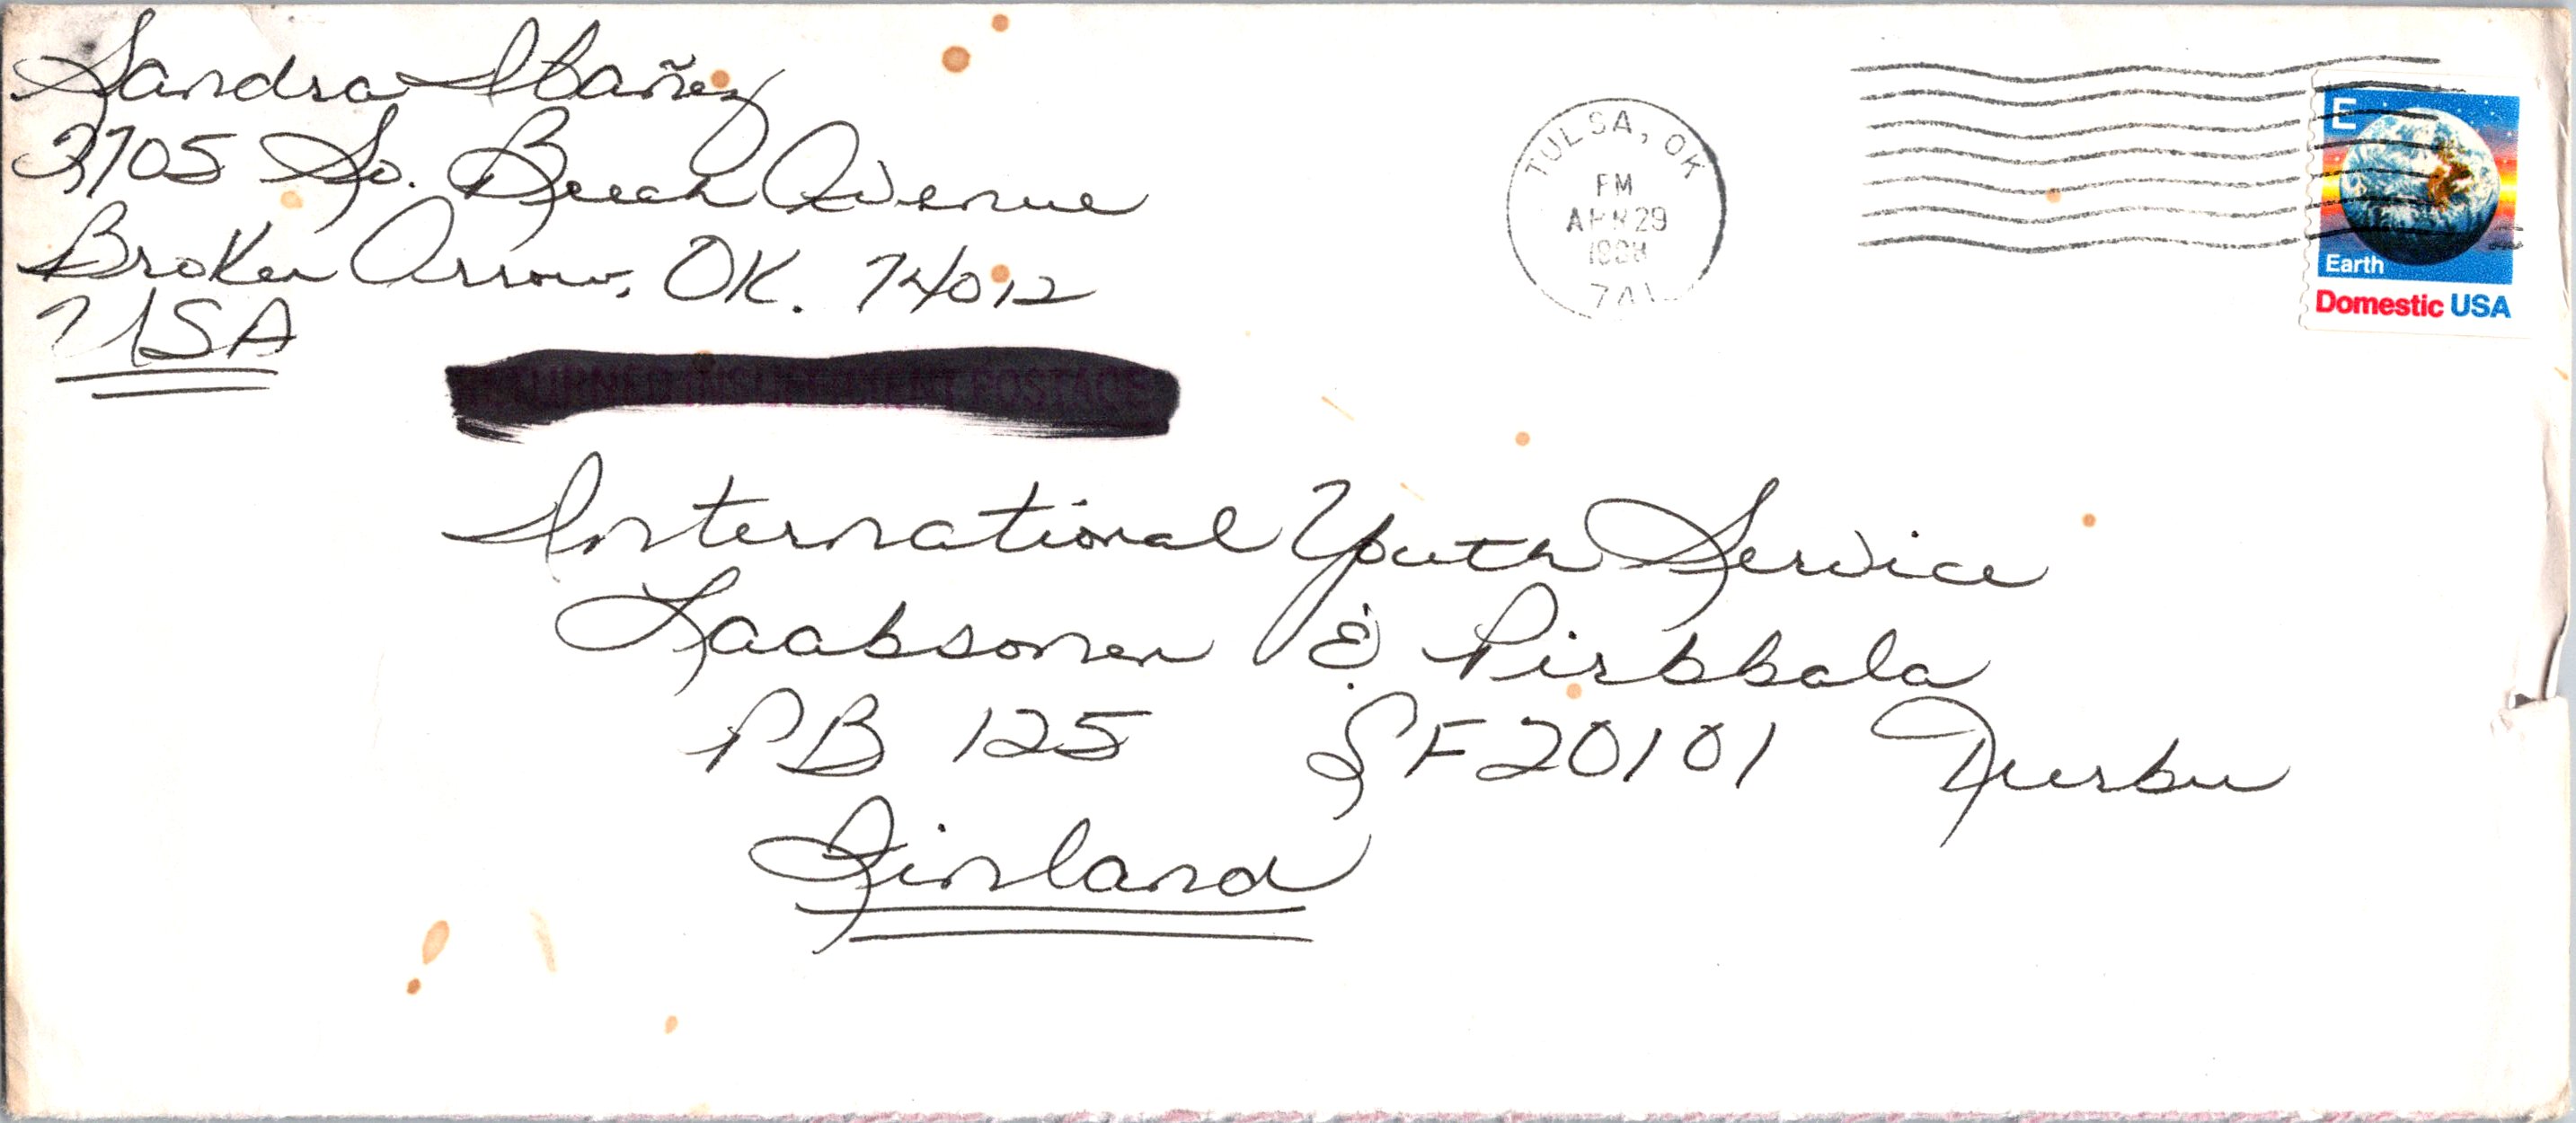 Sandra Ibañez
3705 So. Beech Avenue
Broken Arrow, OK. 74012
USA
TULSA, OK
PM
APR 29
1988
E
Earth
Domestic USA
RETURNED INSUFFICIENT POSTAGE
International Youth Service
Laaksonen & Pirkkala
PB 125 SF20101 Turku
Finland